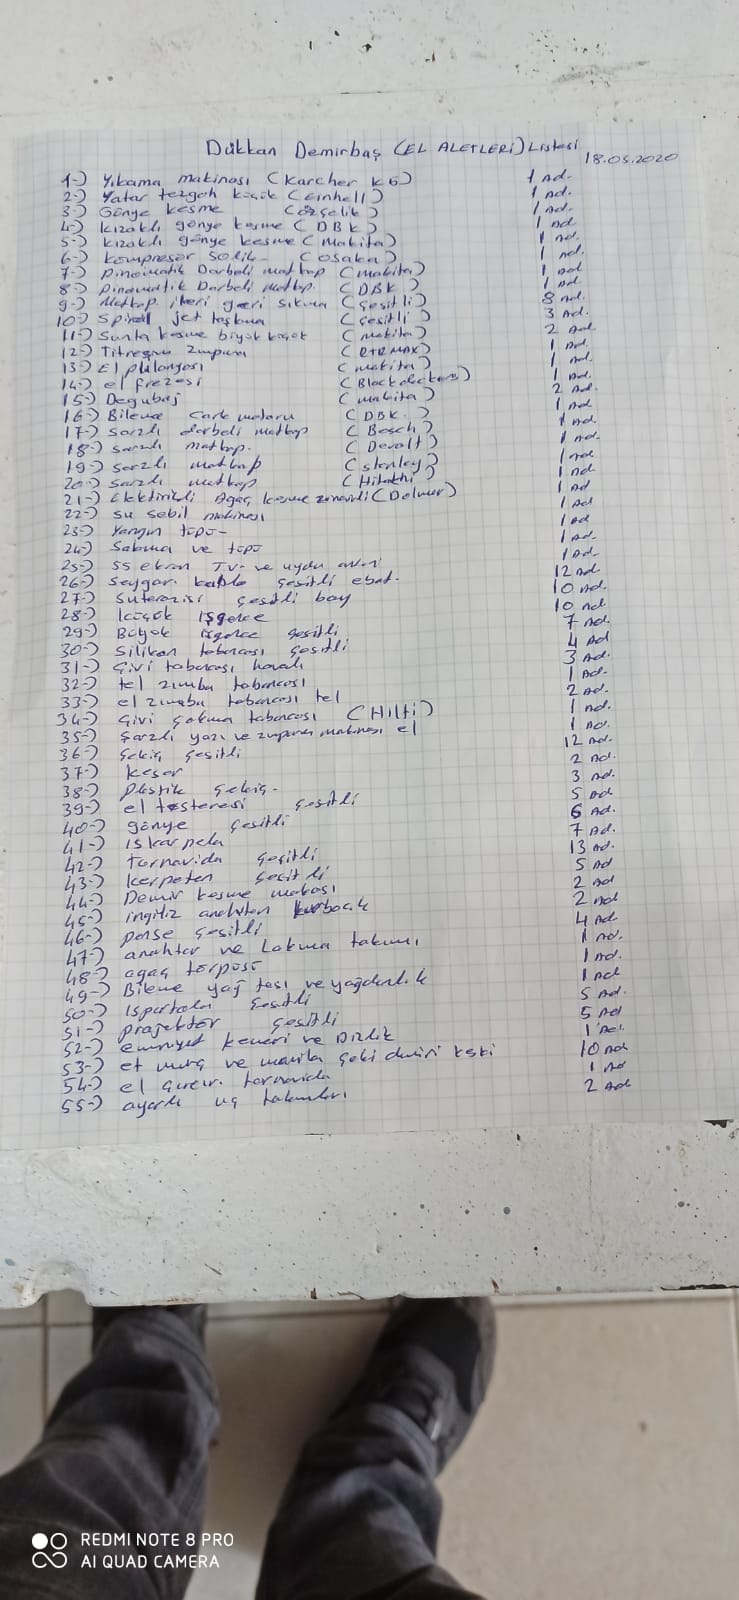 Dükkan Demirbaş (EL ALETLERİ) Listesi 18.05.2020
1-) Yıkama makinası (Karcher K5) 1 Ad.
2-) Yatar tezgah küçük (Einhell) 1 Ad.
3-) Gönye kesme (özçelik) 1 Ad.
4-) Kızaklı gönye kesme (DBK) 1 Ad
5-) Kızaklı gönye kesme (Makita) 1 Ad.
6-) kompresör (osaka) 1 Ad.
7-) Pinomatik Darbeli matkap (makita) 1 Ad
8-) Pinomatik Darbeli matkap. (DBK) 1 Ad.
9-) Matkap ileri geri sıkma (çeşitli) 8 Ad.
10-) Spiral jet taşlama (çeşitli) 3 Ad.
11-) Sunta kesme büyük küçük (makita) 2 Ad
12-) Titreşim zımpara (RTRMAX) 1 Ad.
13-) El plalanyası (makita) 1 Ad.
14-) el frezesi (Black deckers) 1 Ad.
15-) Degubaj (makita) 2 Ad.
16-) Bileme Çark motoru (DBK.) 1 Ad
17-) Şarzlı darbeli matkap (Bosch) 1 Ad.
18-) Şarzlı matkap. (Devalt) 1 Ad.
19-) şarzlı matkap (Stanley) 1 Ad
20-) şarzlı matkap (Hitachi) 1 Ad.
21-) Elektirikli Ağaç kesme (Dolmar) 1 Ad
22-) su sebil makinası 1 Ad
23-) Yangın tüpü- 1 Ad
24-) ve tüpü 1 Ad.
25-) 55 ekran TV- ve uydu 1 Ad.
26-) Seygar. kablo çeşitli ebat. 12 Ad
27-) Suterazisi çeşitli boy 10 Ad.
28-) küçük işgence 10 Ad
29-) Büyük işgence çeşitli 7 Ad.
30-) Silikon tabancası çeşitli 4 Ad
31-) Çivi tabancası havalı 3 Ad.
32-) tel zımba tabancası 1 Ad.
33-) el zımba tabancası tel 2 Ad.
34-) Çivi çakma tabancası (Hilti) 1 Ad.
35-) Şarzlı yazı ve zımpara makinası el 1 Ad.
36-) Çekiç çeşitli 12 Ad.
37-) keser 2 Ad.
38-) Plastik Çekiç- 3 Ad.
39-) el testeresi çeşitli 5 Ad
40-) gönye çeşitli 6 Ad.
41-) Iskarpela 7 Ad.
42-) Tornavida çeşitli 13 Ad.
43-) kerpeten çeşitli 5 Ad
44-) Demir kesme makası 2 Ad
45-) ingiliz anahtarı kurbacık 2 Ad
46-) pense çeşitli 4 Ad
47-) anahtar ve Lokma takımı 1 Ad.
48-) ağaç törpüsü 1 Ad.
49-) Bileme yağ taşı ve yağdanlık 1 Ad
50-) Ispartola çeşitli 5 Ad.
51-) projektör çeşitli 5 Ad
52-) emniyet kemeri ve Dizlik 1 Ad.
53-) et murç ve manila çeki demiri keski 10 Ad
54-) el tornavida 1 Ad
55-) ayarlı uç takımları 2 Ad
REDMI NOTE 8 PRO
AI QUAD CAMERA